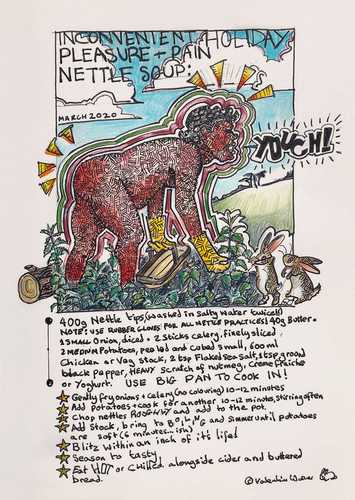 INCONVENIENT HOLIDAY
PLEASURE + PAIN
NETTLE SOUP:
MARCH 2020
YOUCH!
400g Nettle tips (washed in salty water twice!!)
NOTE: USE RUBBER GLOVES FOR ALL NETTLE PRACTICES! 40g Butter.
1 Small Onion, diced. 2 Sticks celery, finely sliced.
2 MEDIUM Potatoes, peeled and cubed small, 600ml
Chicken or Veg Stock, 2 tsp Flaked Sea Salt, 1 tsp ground
black Pepper, HEAVY Scratch of nutmeg, Creme fraiche
or Yoghurt. USE BIG PAN TO COOK IN!
Gently fry onions + celery (no colouring) 10-12 minutes
Add Potatoes + cook for another 10-12 minutes, stirring often
Chop nettles ROUGHLY and add to the pot.
Add Stock, bring to BOILING and simmer until potatoes
are soft (6 minutes..ish)
Blitz within an inch of its life!
Season to tasty.
Eat HOT or Chilled alongside cider and buttered
bread.